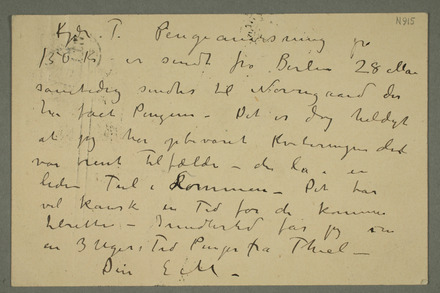 N 915
Kjære T. Pengeanvisning på
130 Kr er sendt fra Berlin 28 Mai
samtidig sendtes til Nørregaard der
har faet Pengene – Det er dog heldigt
at jeg har opbevaret Kvitteringen det
var rent tilfælde – den la i en
liden Tul i Lommen – Det har
vel kanske en Tid før de kommer
tilrette – Imidlertid får jeg om
en 3 Ugers Tid Penge fra Thiel –
Din E M –